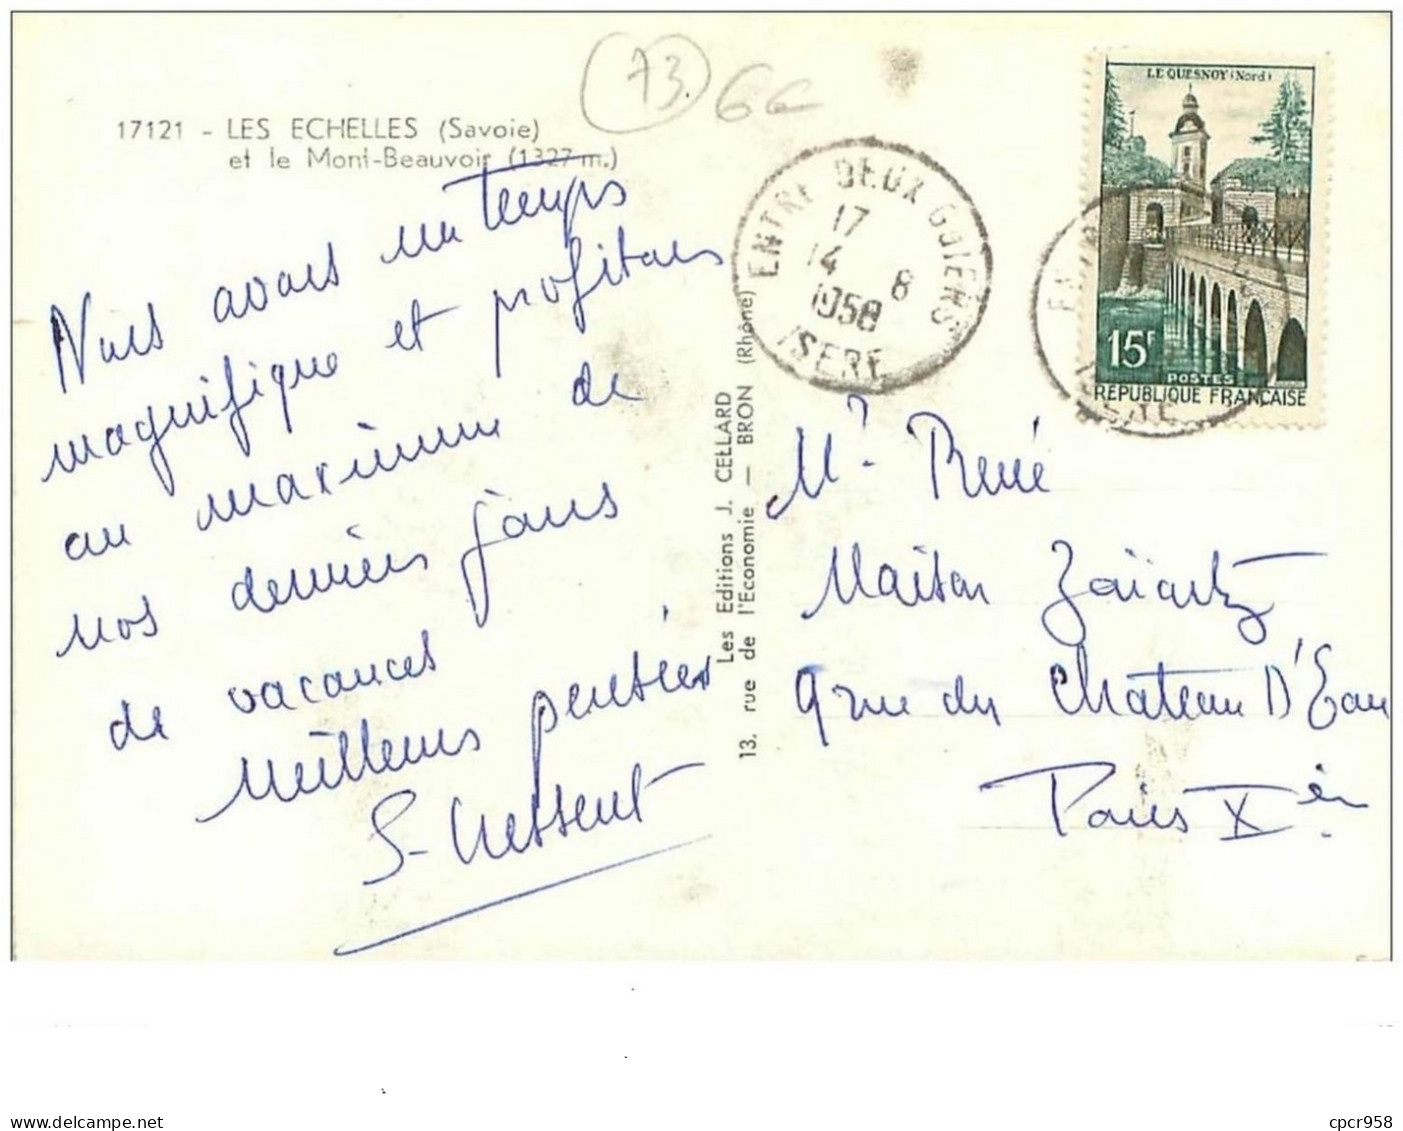 73. 6€
LE QUESNOY (Nord)
17121 - LES ECHELLES (Savoie)
et le Mont-Beauvoir (1327 m.)
ENTRE DEUX GUIERS
17
14 8
1958
ISERE
15F
POSTES
REPUBLIQUE FRANÇAISE
Nous avons un temps
magnifique et profitons
au maximum de
nos derniers jours
de vacances
Meilleures pensées
Les Editions J. CELLARD
13, rue de l'Economie — BRON (Rhône)
Mr René
Maison
9 rue du Chateau D'Eau
Paris Xèm
cpcr958